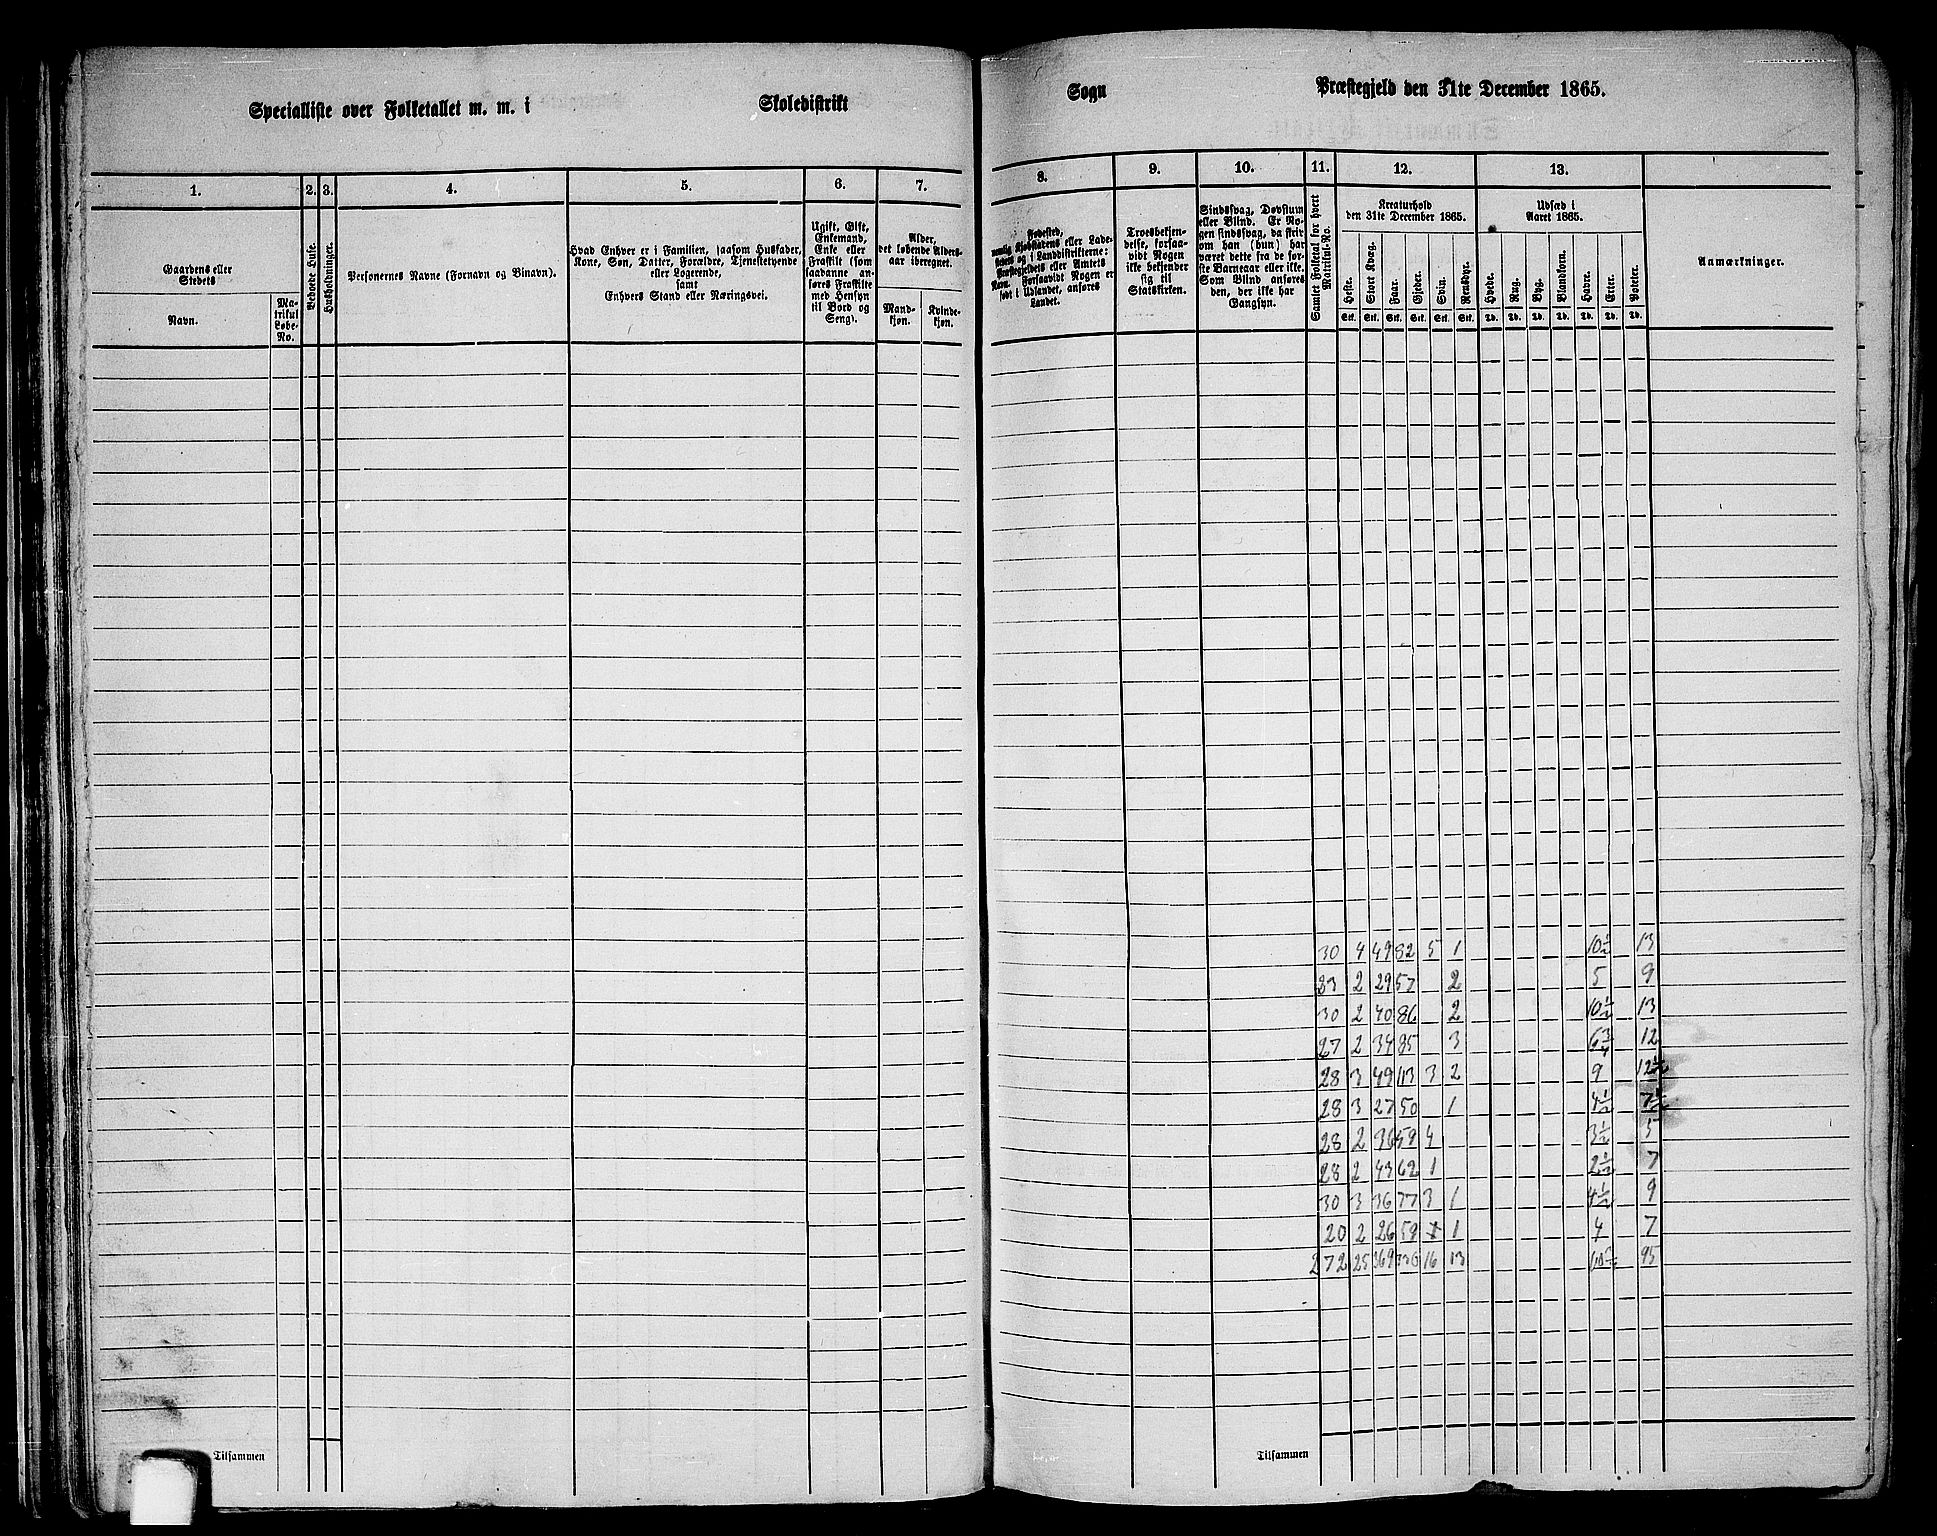 Specialliste over Folketallet m. m. i Skoledistrikt
Sogn Præstegjeld den 31te December 1865.
1. 2. 3. 4. 5. 6. 7.
8. 9. 10. 11. 12. 13.
Gaardens eller
Stedets
Navn.
Ma-
trikul
Løbe-
No.
Beboede Huse.
Husholdninger.
Personernes Navne (Fornavn og Binavn).
Hvad Enhver er i Familien, saasom Husfader,
Kone, Søn, Datter, Forældre, Tjenestetyende
eller Logerende,
samt
Enhvers Stand eller Næringsvei.
Ugift, Gift,
Enkemand,
Enke eller
Fraskilt (som
saadanne an-
føres Fraskilte
med Hensyn
til Bord og
Seng).
Alder,
det løbende Alders-
aar iberegnet.
Mand-
kjøn.
Kvinde-
kjøn.
Fødested,
nemlig Kjøbstadens eller Lade-
stedets og i Landdistrikterne:
Præstegjeldets eller Amtets
Navn. Forsaavidt Nogen er
født i Udlandet, anføres
Landet.
Troesbekjen-
delse, forsaa-
vidt Nogen
ikke bekjender
sig til
Statskirken.
Sindssvag, Døvstum
eller Blind. Er No-
gen sindssvag, da skriv
om han (hun) har
været dette fra de før-
ste Barneaar eller ikke.
Som Blind anføres
den, der ikke har
Gangsyn.
Samlet Folketal for hvert
Matrikul-No.
Kreaturhold
den 31te December 1865.
Heste. Stort Kvæg. Faar. Gjeder. Svin. Rensdyr.
Stk. Stk. Stk. Stk. Stk. Stk.
Udsæd i
Aaret 1865.
Hvede. Rug. Byg. Blandkorn. Havre. Erter. Poteter.
Td. Td. Td. Td. Td. Td. Td.
Anmærkninger.
30 4 49 82 5 1 10½ 13
23 2 29 57 2 5 9
30 2 40 86 2 10½ 13
27 2 34 85 3 6¾ 12
28 3 49 113 3 2 9 12½
28 3 27 50 1 4½ 7½
28 2 36 59 4 3½ 5
28 2 43 62 1 2½ 7
30 3 36 77 3 1 4½ 9
20 2 26 59 1 4 7
272 25 369 16 13 95
Tilsammen
Tilsammen